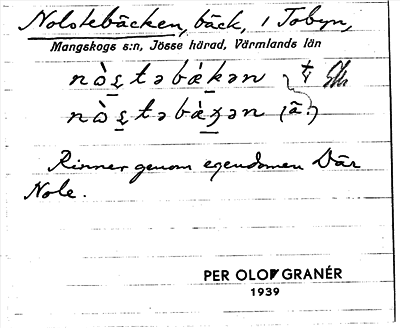 Nolstebäcken, bäck, i Tobyn,
Mangskogs s:n, Jösse härad, Värmlands län
nòs̠təbàk̠ən
nòs̠təbàk̠ən (ä.)
Rinner genom egendomen Där
Nole.
PER OLOF GRANÉR
1939